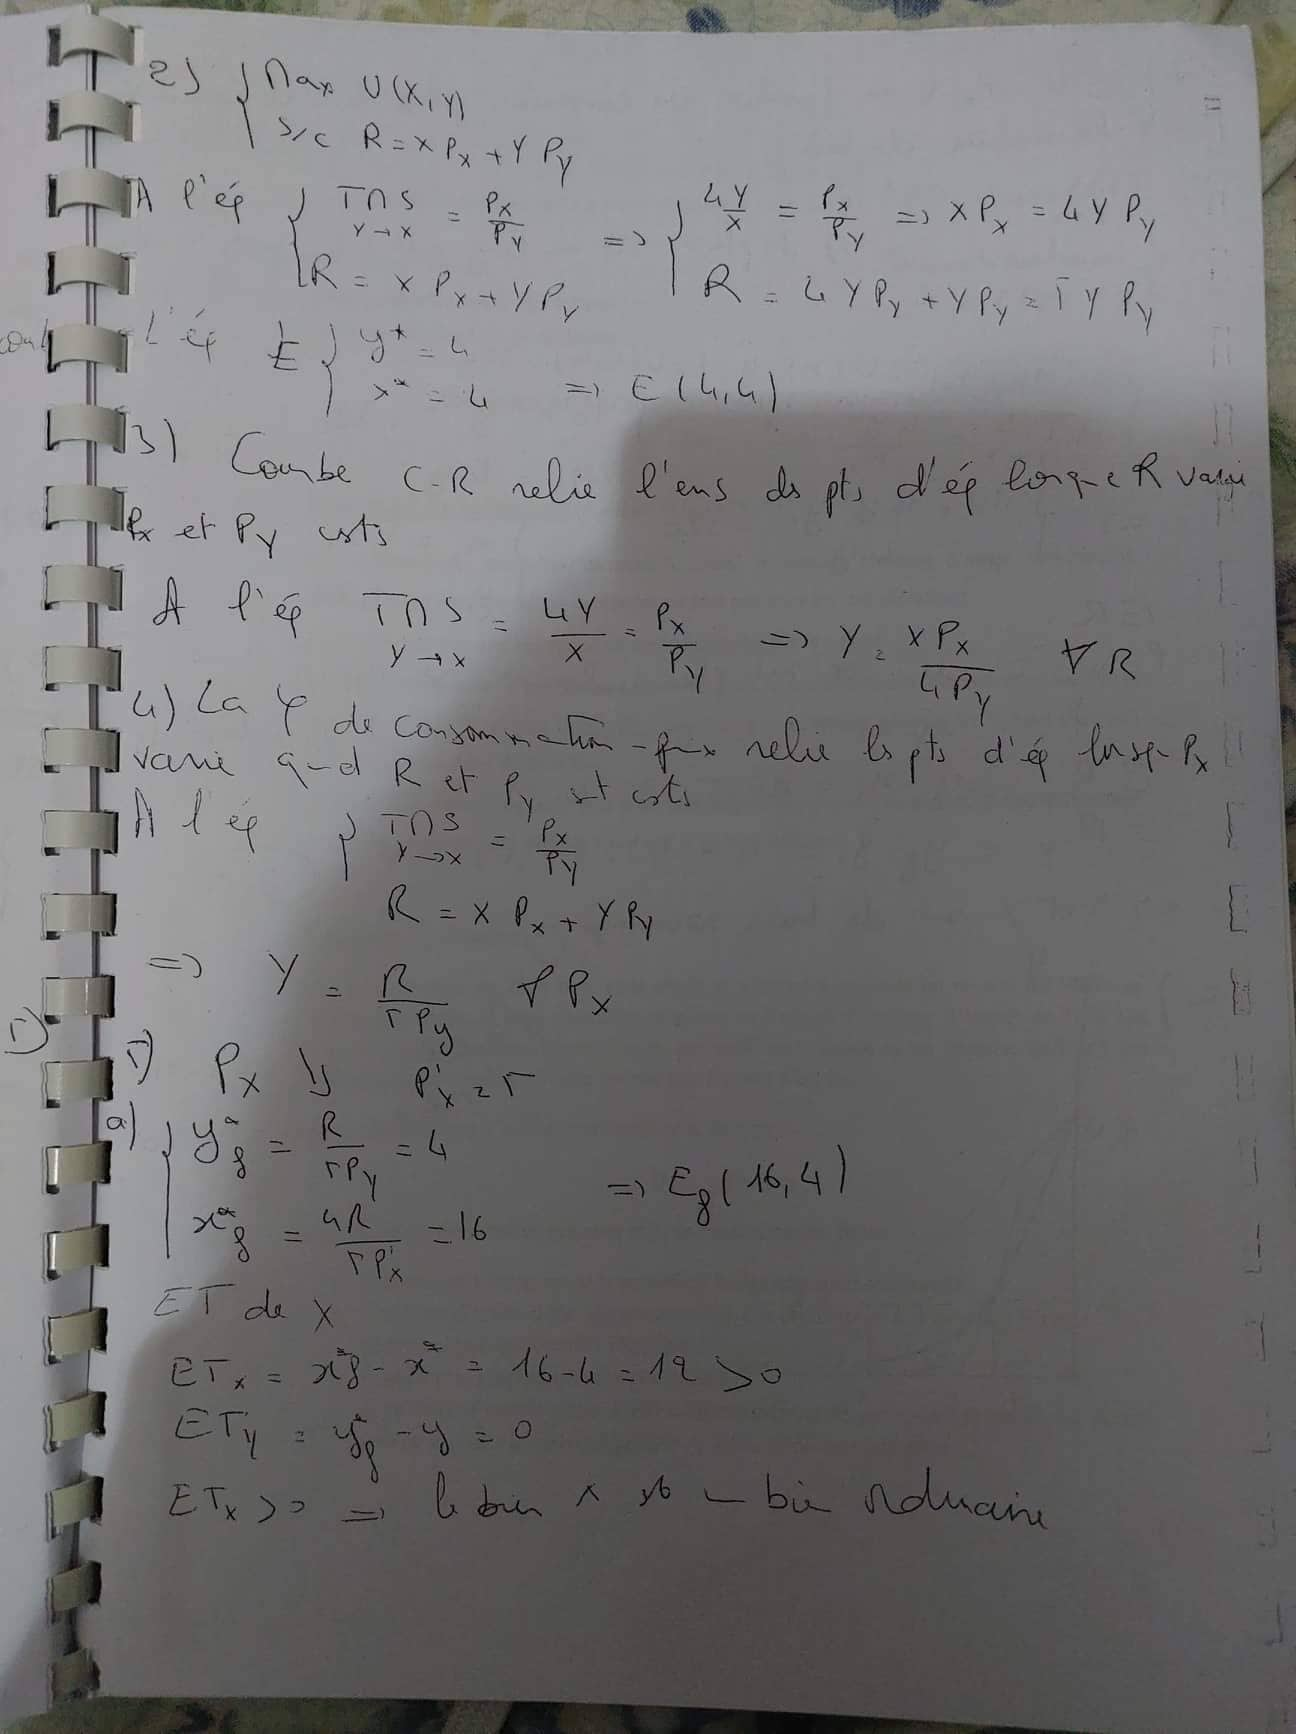 2) { Max U(X,Y)
s/c R = X Px + Y PY
A l'éq { TMS Y→X = PX/PY => { 4Y/X = PX/PY => X PX = 4 Y PY
R = X PX + Y PY R = 4 Y PY + Y PY = 5 Y PY
L'éq E { y* = 4
x* = 4 => E (4,4)
3) Courbe C-R relie l'ens ds pts d'éq lorsque R varie
Px et PY csts
A l'éq TMS Y→X = 4Y/X = PX/PY => Y = X PX / 4 PY ∀ R
4) La φ de consommation-prix relie ls pts d'éq lorsq Px
varie qd R et PY st csts
A l'éq { TMS Y→X = PX/PY
R = X PX + Y PY
=> Y = R / 5 Py ∀ PX
5) PX ↘ P'x = 5
a) { y*f = R / 5PY = 4
x*f = 4R / 5P'x = 16 => Ef (16,4)
ET de X
ETx = x*f - x* = 16 - 4 = 12 > 0
ETy = y*f - y = 0
ETx > 0 => le bien X st bien ordinaire